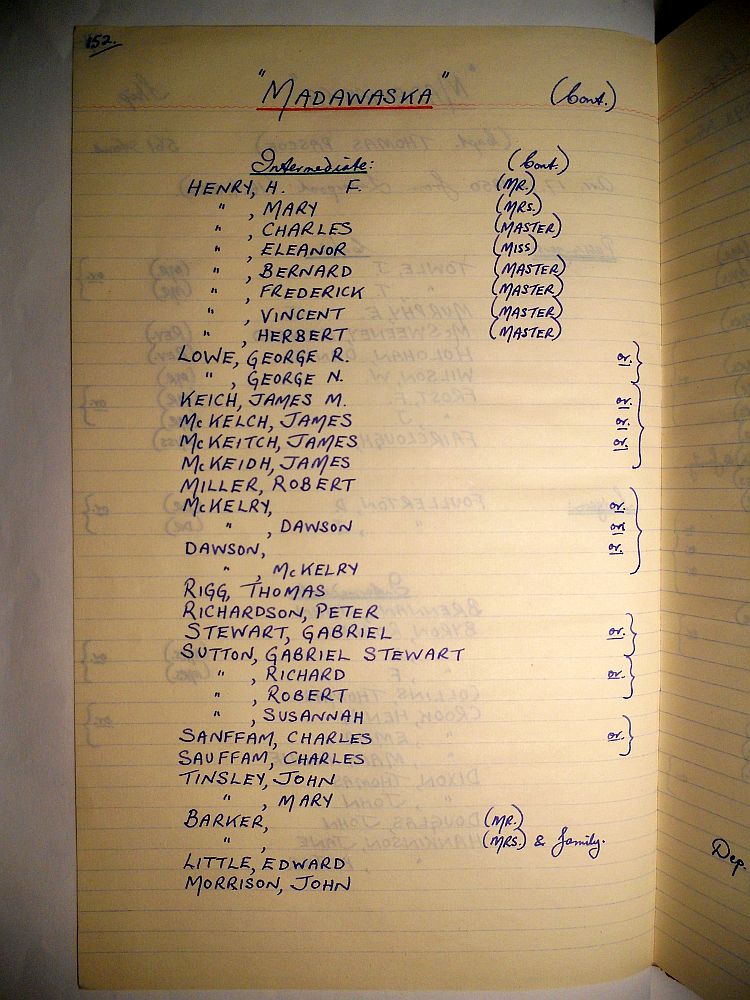 152.
"MADAWASKA" (Cont.)
Intermediate: (Cont.)
HENRY, H. F. (MR.)
" , MARY (MRS.)
" , CHARLES (MASTER)
" , ELEANOR (MISS)
" , BERNARD (MASTER)
" , FREDERICK (MASTER)
" , VINCENT (MASTER)
" , HERBERT (MASTER)
LOWE, GEORGE R. or.
" , GEORGE N.
KEICH, JAMES M. or.
McKELCH, JAMES or.
McKEITCH, JAMES or.
McKEIDH, JAMES
MILLER, ROBERT
McKELRY, or.
" , DAWSON or
DAWSON, or.
" , McKELRY
RIGG, THOMAS
RICHARDSON, PETER
STEWART, GABRIEL or.
SUTTON, GABRIEL STEWART
" , RICHARD or.
" , ROBERT
" , SUSANNAH
SANFFAM, CHARLES or.
SAUFFAM, CHARLES
TINSLEY, JOHN
" , MARY
BARKER, (MR.)
" , (MRS.) & family.
LITTLE, EDWARD
MORRISON, JOHN
Dep.